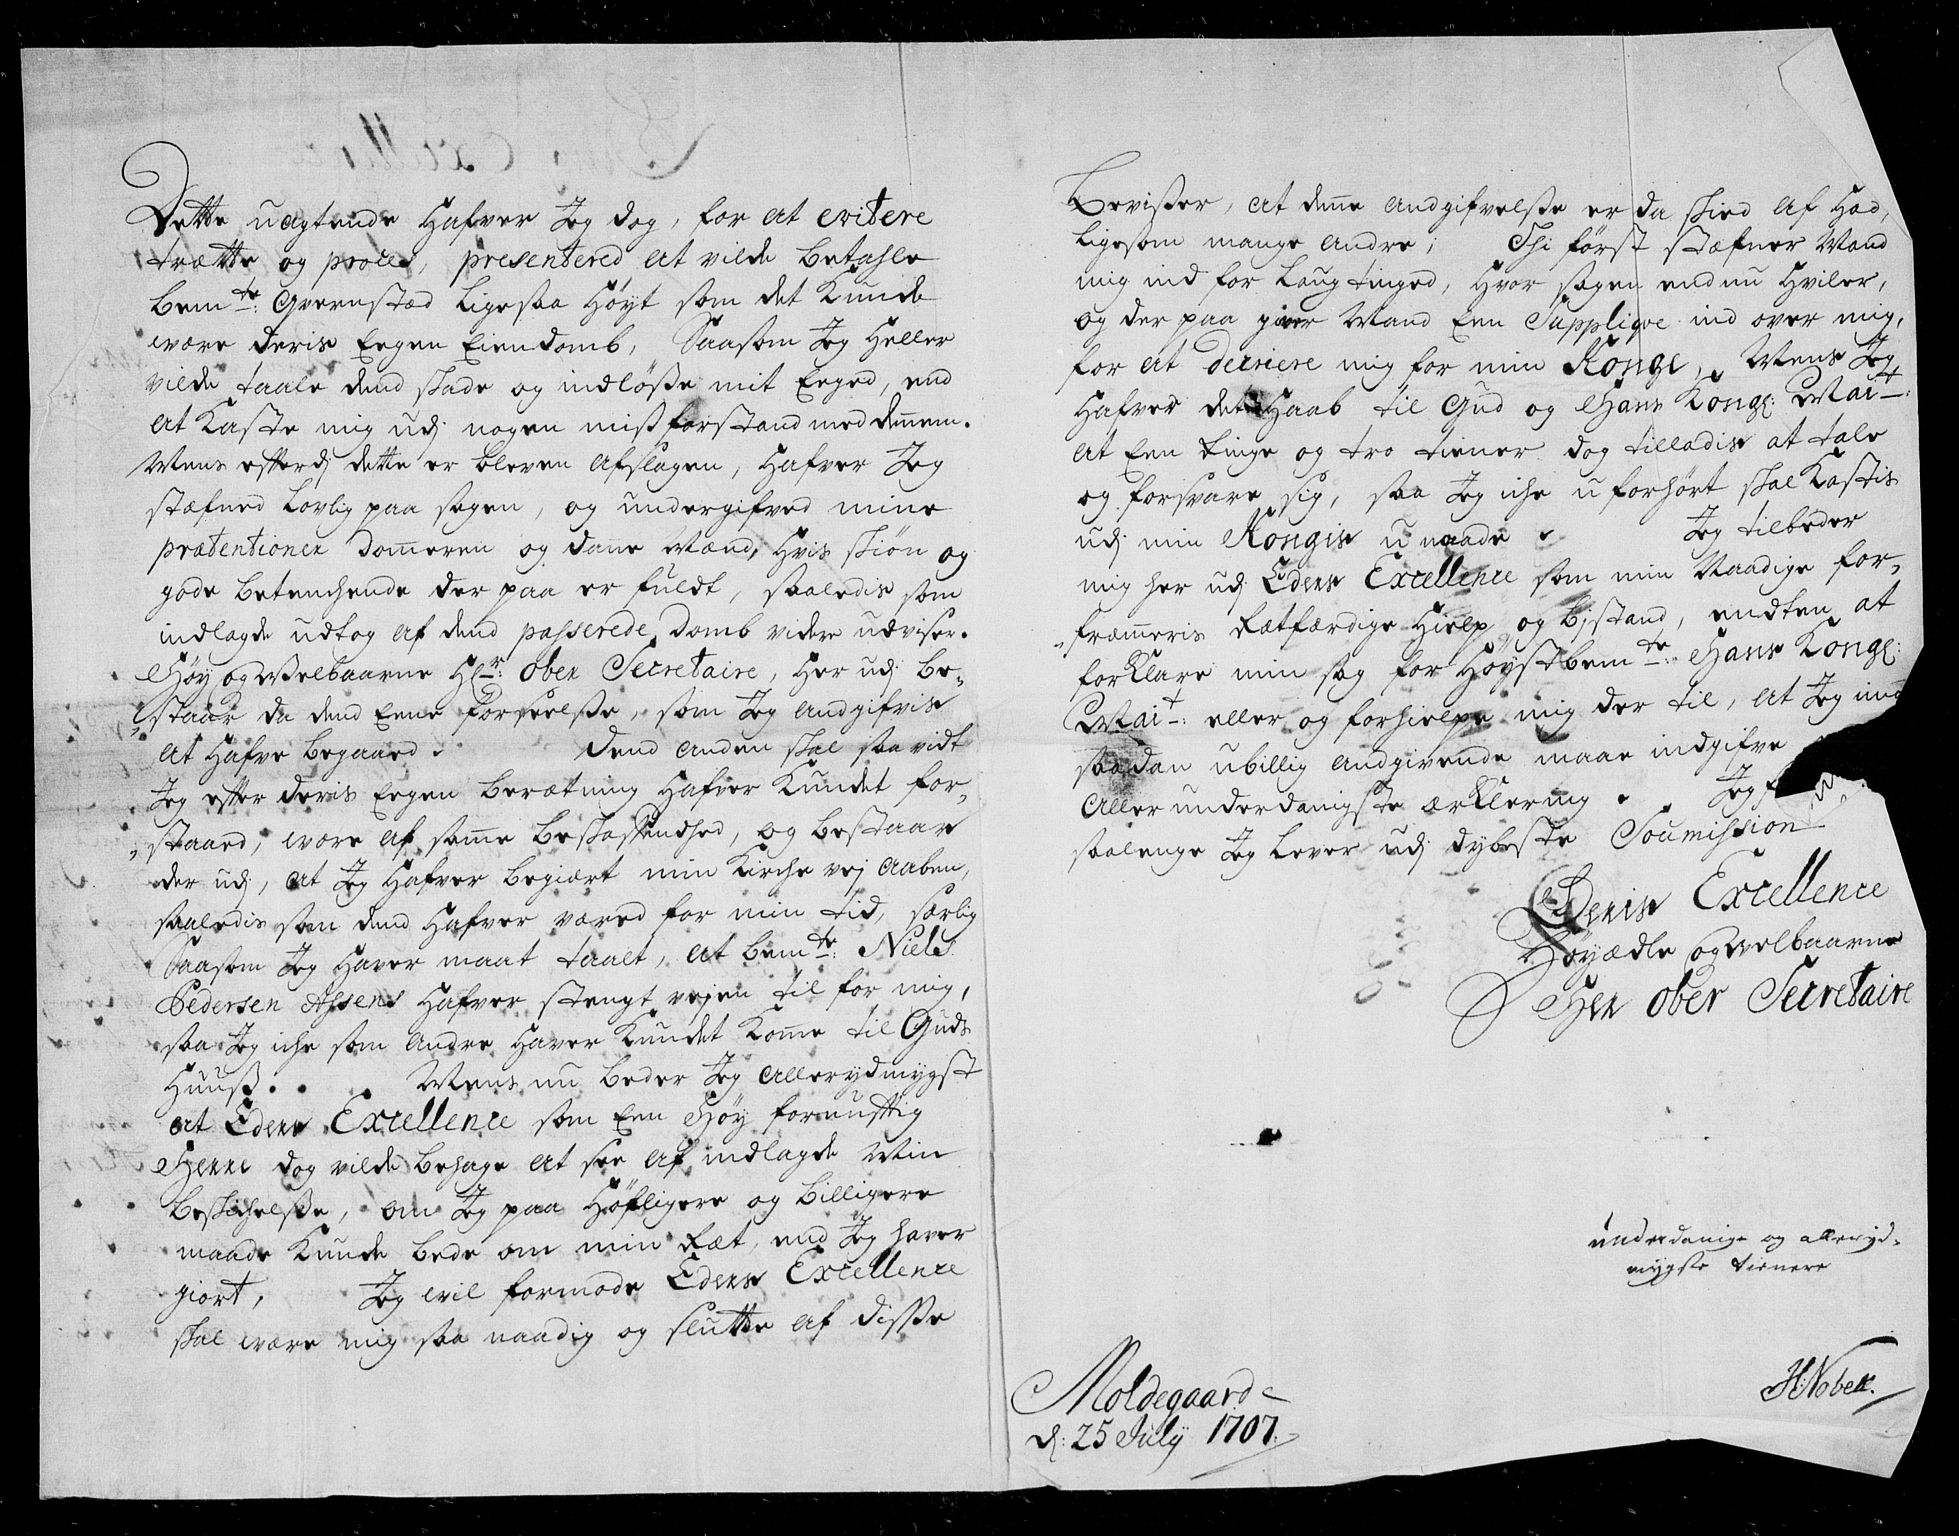 Dette uagtende Hafver Jeg dog, for at evitere
trætte og proces, presentered at vilde betahle
bem.te: Qvernstæd ligesaa Høyt som det Kunde
være deris Eegen Eiendomb, Saasom Jeg Heller
vilde taale dend skade og indløsse mit Eeged, end
at Kaste mig udj nogen misforstand med dennem.
Mens efterdj dette er bleven afslagen, Hafver Jeg
stæfned lovlig paa sagen, og undergifved mine
prætentioner Domeren og dane Mænd, Hvis skiøn og
gode betenchende der paa er fuldt, saaledis som
indlagde udtog af dend passerede Domb videre udviser.
Høy og Velbaarne Hr: Ober Secretaire, Her udj be-
staar da dend Eene forseelsse, som Jeg andgifvis
at Hafve begaaed. Dend anden skal saa vidt
Jeg efter deris Eegen beretning Hafver Kundet for-
staaed, være af same beskaffendhed, og bestaar
der udj, at Jeg Hafver begiært min Kirche vej aaben,
saaledis som dend Hafver været for min tid, særlig
Saasom Jeg Haver maat taalt, at bem.te: Niels
Pedersen Assens Hafver stengt vejen til for mig,
saa Jeg iche som andre Haver Kundet Kome til Guds
Huuss. Mens nu beder Jeg allerydmygst
at Eders Excellence som Een Høy fornufftig
Herre dog vilde behage at see af indlagde Min
beskichelsse, om Jeg paa Høfligere og billigere
maade Kunde bede om min Ræt, end Jeg haver
giort, Jeg vil formode Eders Excellence
skal være mig saa naadig og slutte af disse
Bevisser, at dene andgifvelsse er da skied af Had,
ligesom mange andre; Thi først stæfner Mand
mig ind for Laugtinged, Hvor sagen endnu Hviler,
og der paa giver Mand Een Supplique ind over mig,
for at decriere mig for min Konge, Mens Jeg
Hafver det Haab til Gud og Hans Kongl: Mai.t:
at Een ringe og tro tiener dog tilladis at tale
og forsvare sig, saa Jeg iche uforhørt skal Kastis
udj min Kongis unaade. Jeg tilbeder
mig her udj Eders Excellence som min Naadige for-
fræmeris Rætfærdige Hielp og bistand, endten at
forklare min sag for Høystbem.te: Hans Kongl:
Mai.t: eller og forhielpe mig der til, at Jeg imod
saadan ubillig andgivende maae indgifve
Allerunderdanigste ærklering. Jeg
saalenge Jeg lever udj dybeste Soumission
Deris Excellence
Høyædle og velbaarne
Her Ober Secretaire
underdanige og alleryd-
mygste tienere
H:Nobell.
Moldegaard
d: 25 July 1707.